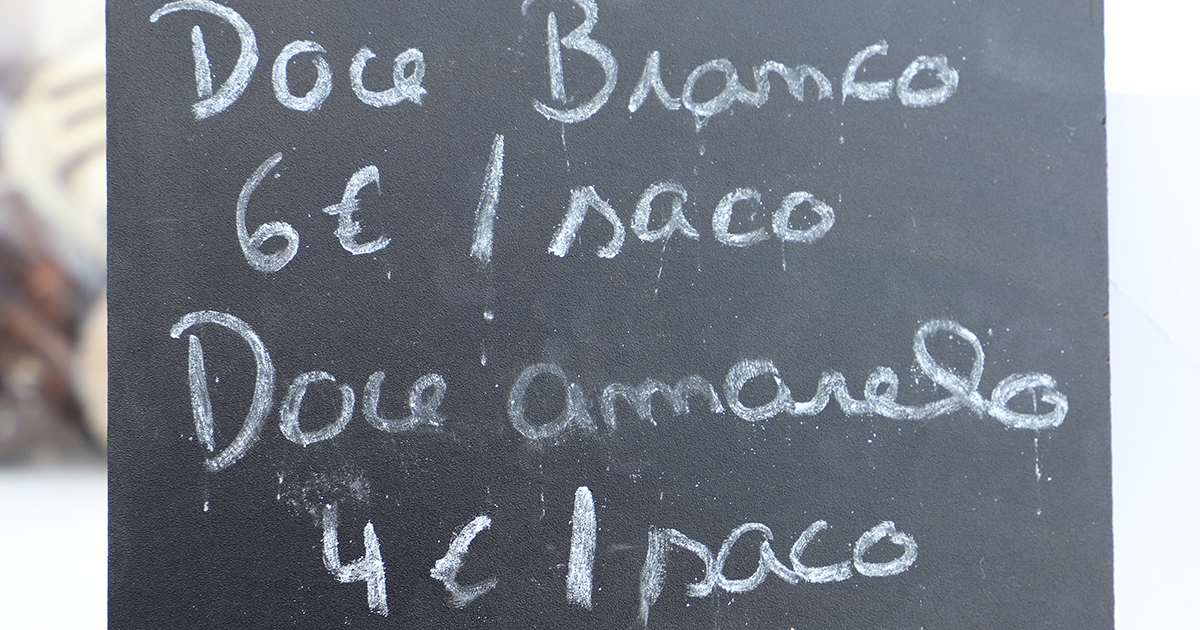 Doce Branco
6€ / saco
Doce amarelo
4€ / saco